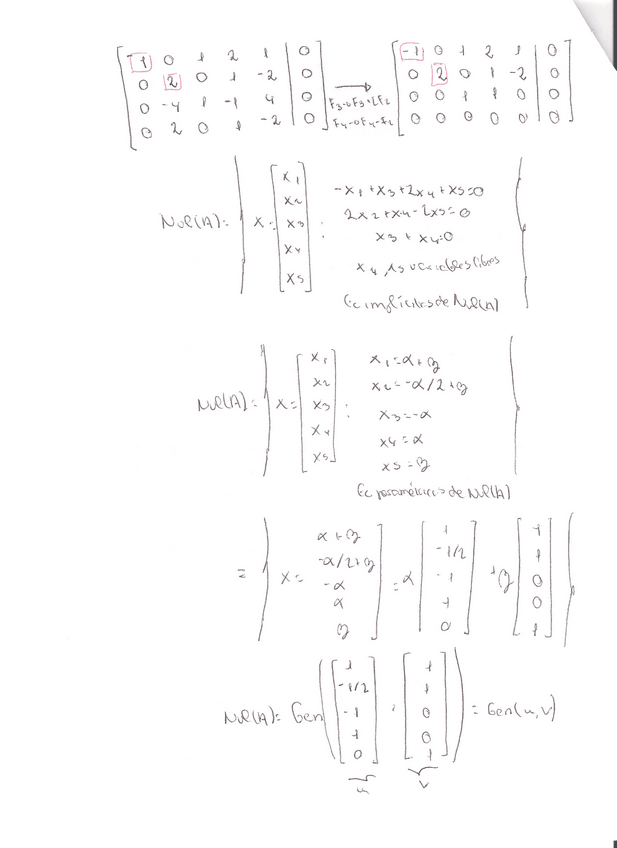 [ -1 0 1 2 1 | 0 ] [ -1 0 1 2 1 | 0 ]
[ 0 2 0 1 -2 | 0 ] [ 0 2 0 1 -2 | 0 ]
[ 0 -4 1 -1 4 | 0 ] F3→F3+2F2 [ 0 0 1 1 0 | 0 ]
[ 0 2 0 1 -2 | 0 ] F4→F4-F2 [ 0 0 0 0 0 | 0 ]
Nul(A)= { X= [ x1 x2 x3 x4 x5 ] :
-x1+x3+2x4+x5=0
2x2+x4-2x5=0
x3+x4=0
x4, x5 variables libres }
Ec implícitas de Nul(A)
Nul(A)= { X= [ x1 x2 x3 x4 x5 ] :
x1=α+β
x2=-α/2+β
x3=-α
x4=α
x5=β }
Ec paramétricas de Nul(A)
= { X= [ α+β -α/2+β -α α β ] = α [ 1 -1/2 -1 1 0 ] + β [ 1 1 0 0 1 ] }
Nul(A)= Gen( [ 1 -1/2 -1 1 0 ] , [ 1 1 0 0 1 ] ) = Gen(u,v)
u v